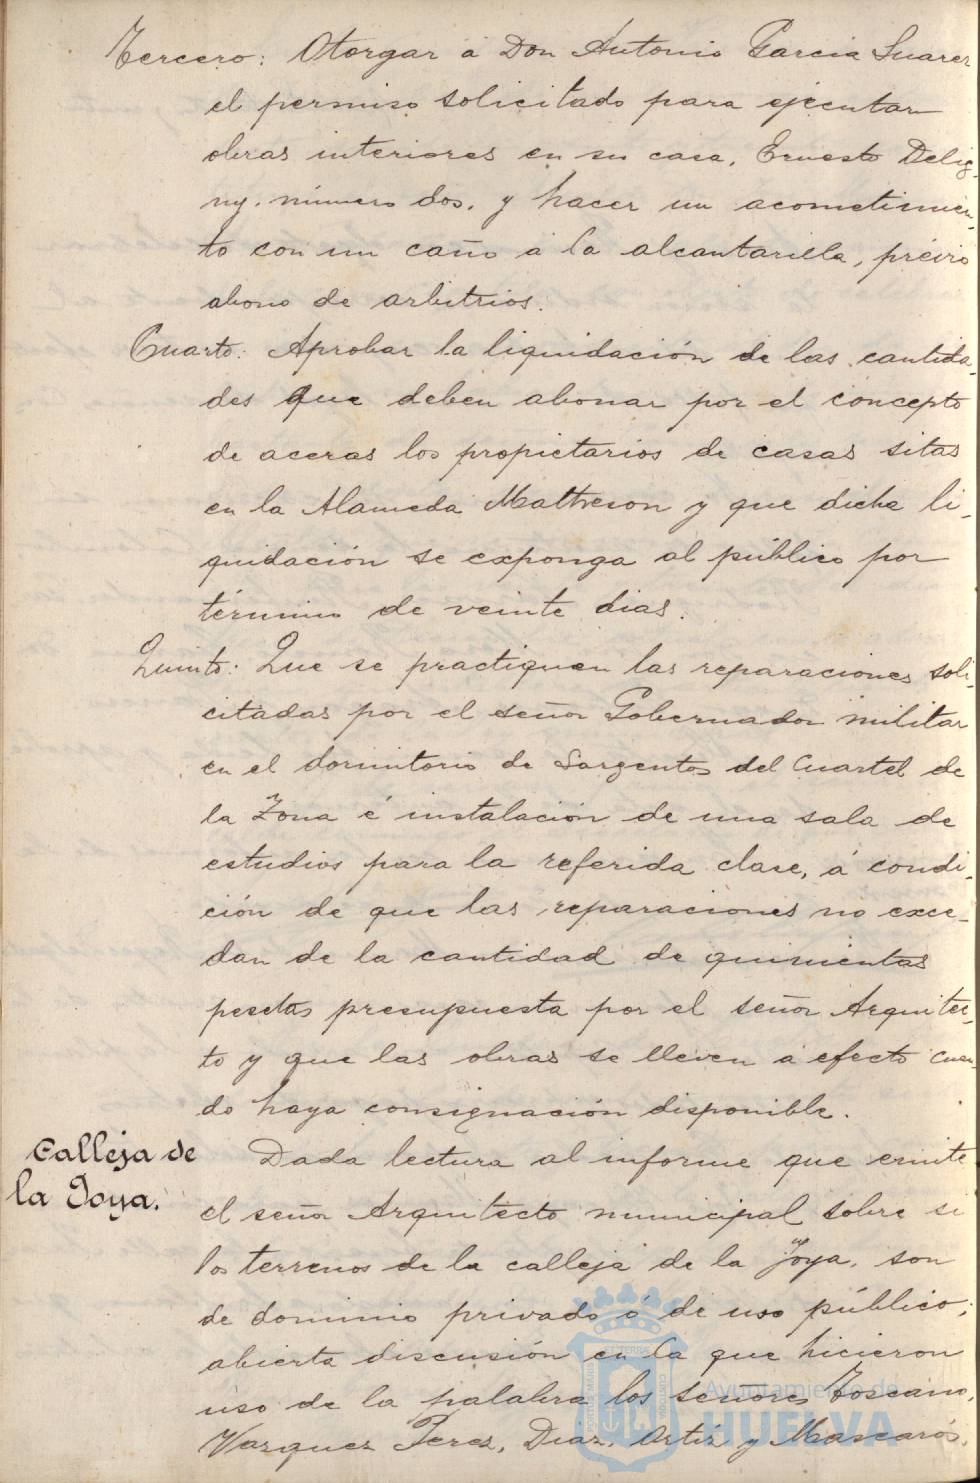 Tercero: Otorgar á Don Antonio Garcia Suarez
el permiso solicitado para ejecutar
obras interiores en su casa, Ernesto Delig-
ny, número dos, y hacer un acometimien-
to con un caño á la alcantarilla, prévio
abono de arbitrios.
Cuarto: Aprobar la liquidación de las cantida-
des que deben abonar por el concepto
de aceras los propietarios de casas sitas
en la Alameda Mattheson y que dicha li-
quidación se exponga al público por
término de veinte dias.
Quinto: Que se practiquen las reparaciones soli-
citadas por el señor Gobernador militar
en el dormitorio de Sargentos del Cuartel de
la Zona é instalación de una sala de
estudios para la referida clase, á condi-
ción de que las reparaciones no exce-
dan de la cantidad de quinientas
pesetas presupuesta por el señor Arquitec-
to y que las obras se lleven á efecto cuan-
do haya consignación disponible.
Calleja de
la Joya.
Dada lectura al informe que emite
el señor Arquitecto municipal sobre si
los terrenos de la calleja de la Joya, son
de dominio privado ó de uso público;
abierta discusión en la que hicieron
uso de la palabra los señores Toscano,
Vazquez Perez, Diaz, Ortiz y Mascarós,
Ayuntamiento de
HUELVA